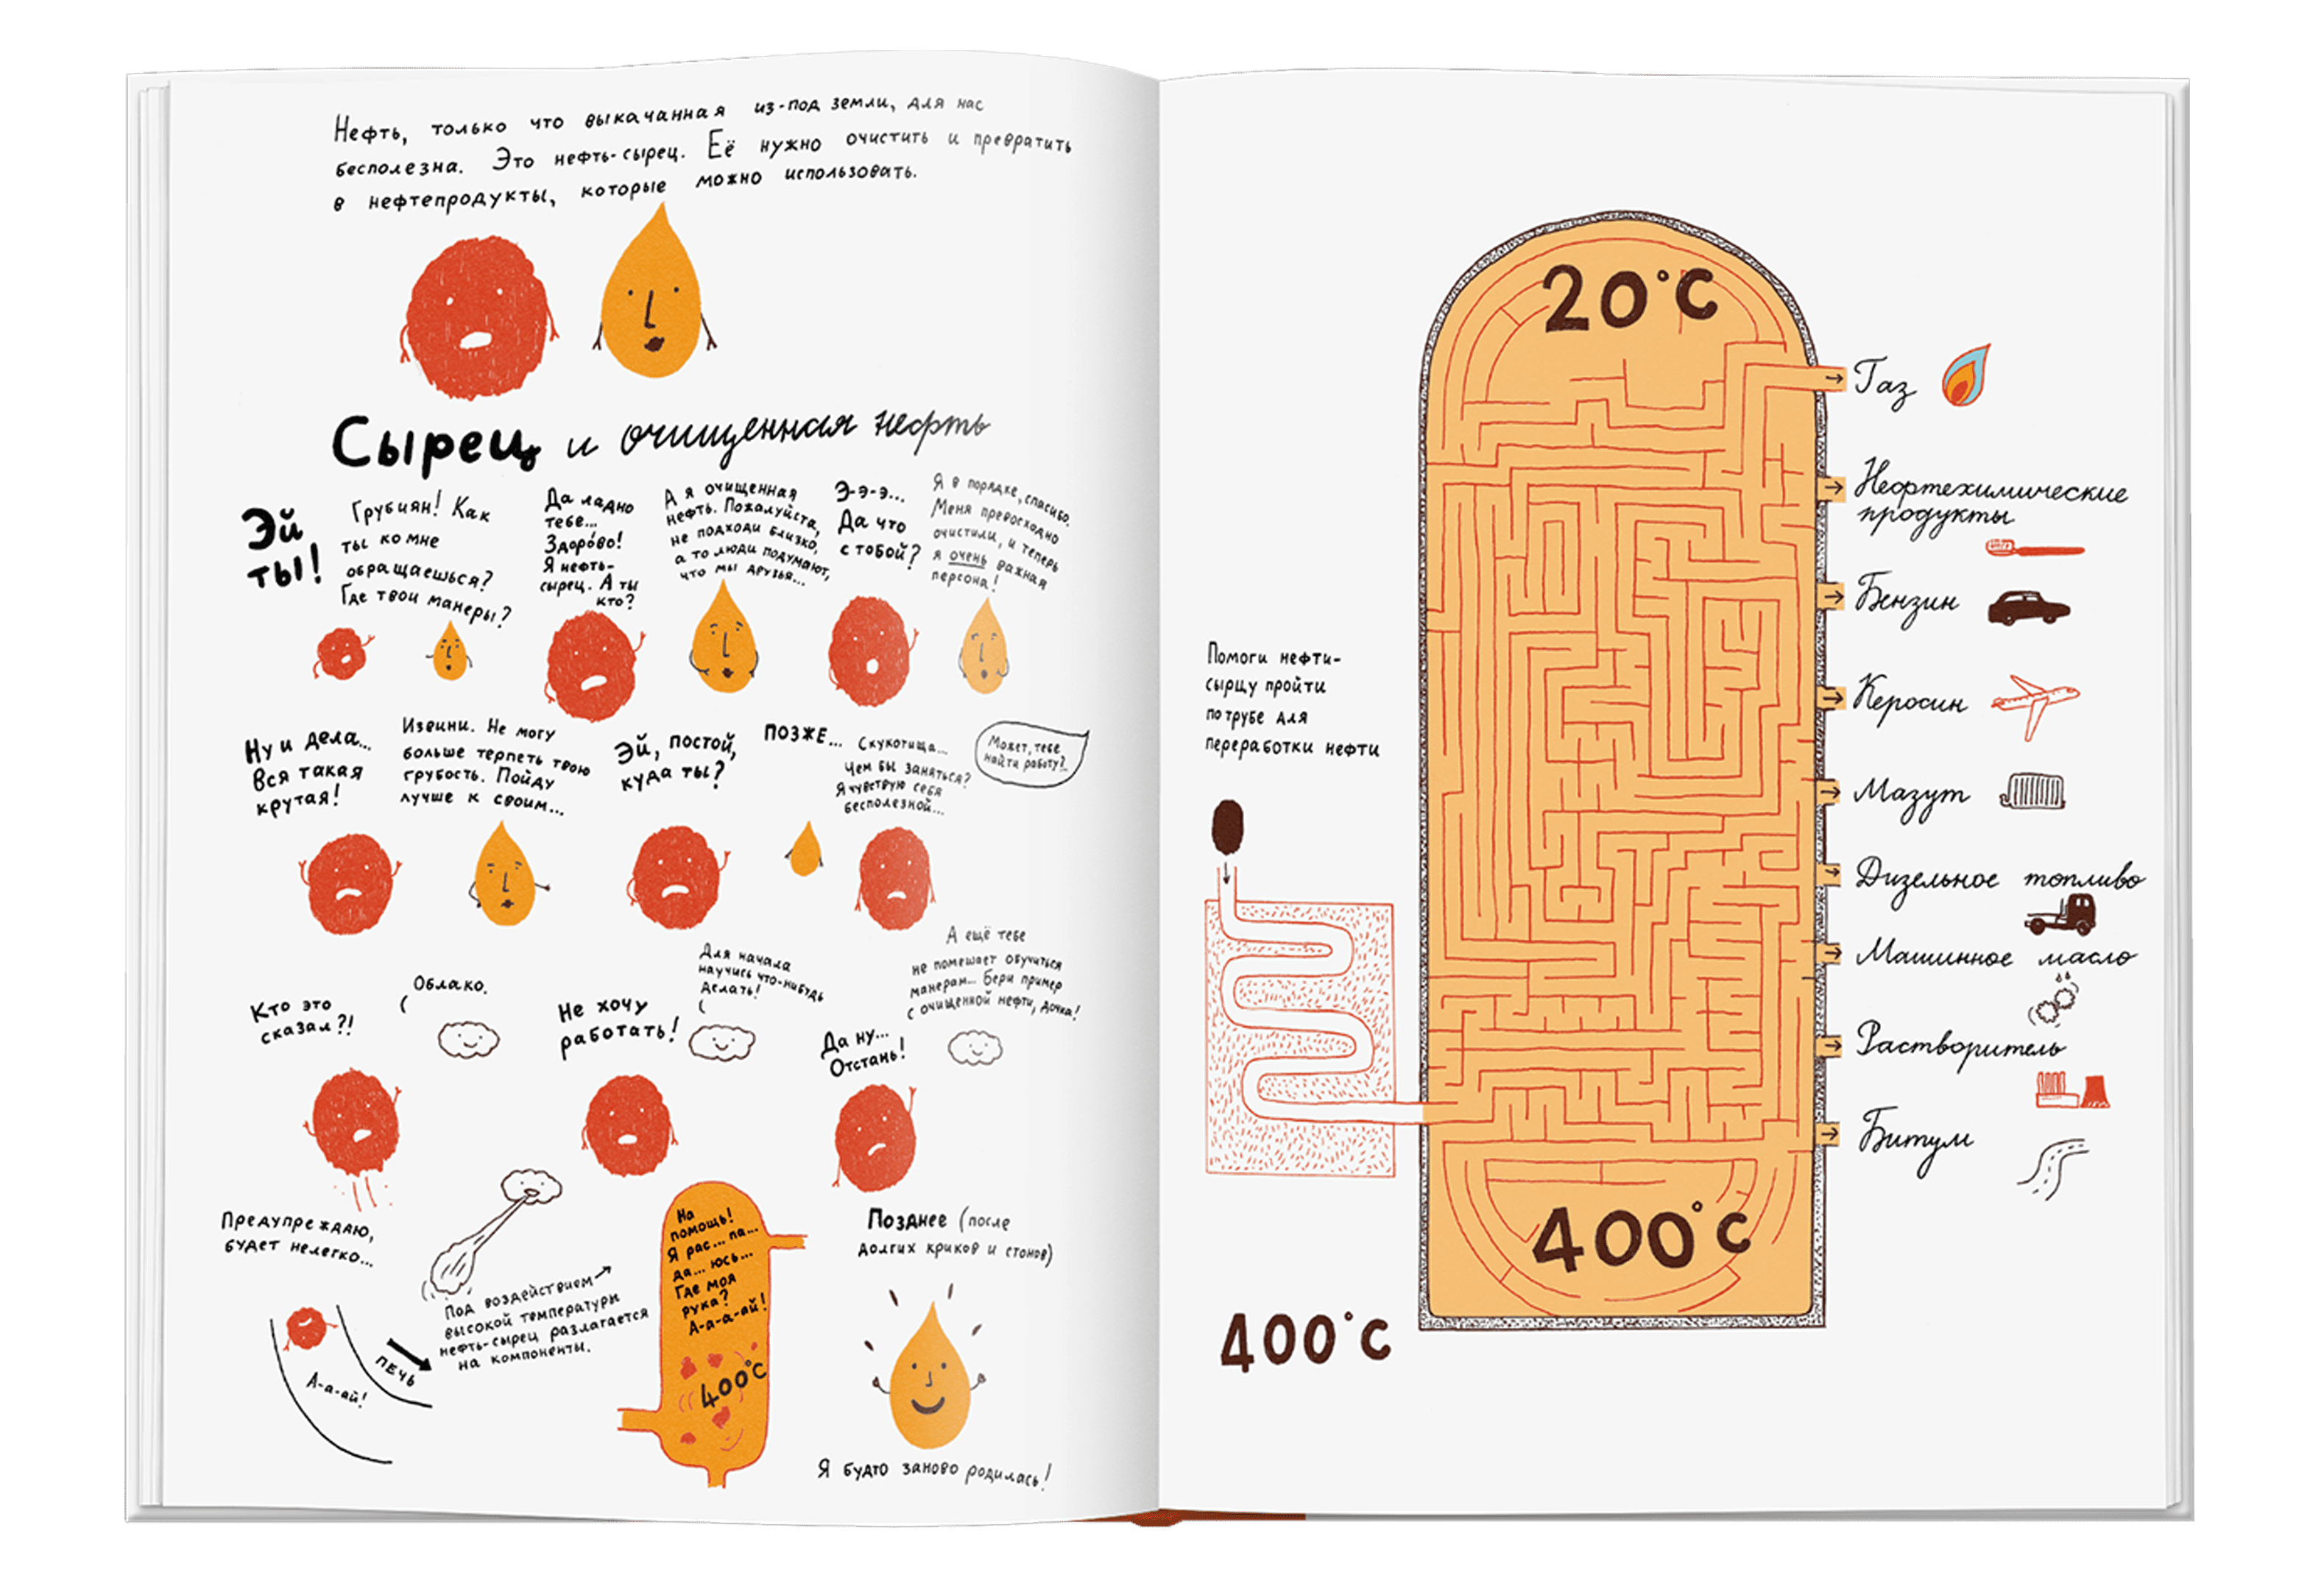 Нефть, только что выкачанная из-под земли, для нас
бесполезна. Это нефть-сырец. Её нужно очистить и превратить
в нефтепродукты, которые можно использовать.
Сырец и очищенная нефть
Эй
ты!
Грубиян! Как
ты ко мне
обращаешься?
Где твои манеры?
Да ладно
тебе...
Здоро́во!
Я нефть-
сырец. А ты
кто?
А я очищенная
нефть. Пожалуйста,
не подходи близко,
а то люди подумают,
что мы друзья...
Э-э-э...
Да что
с тобой?
Я в порядке, спасибо.
Меня превосходно
очистили, и теперь
я очень важная
персона!
Ну и дела...
Вся такая
крутая!
Извини. Не могу
больше терпеть твою
грубость. Пойду
лучше к своим...
Эй, постой,
куда ты?
ПОЗЖЕ...
Скукотища...
Чем бы заняться?
Я чувствую себя
бесполезной...
Может, тебе
найти работу?
Кто это
сказал?!
Облако.
Не хочу
работать!
Для начала
научись что-нибудь
делать!
Да ну...
Отстань!
А ещё тебе
не помешает обучиться
манерам... Бери пример
с очищенной нефти, дочка!
Предупреждаю,
будет нелегко...
А-а-ай!
ПЕЧЬ
Под воздействием
высокой температуры
нефть-сырец разлагается
на компоненты.
На
помощь!
Я рас... па...
да... юсь...
Где моя
рука?
А-а-а-ай!
400°C
Позднее (после
долгих криков и стонов)
Я будто заново родилась!
Помоги нефти-
сырцу пройти
по трубе для
переработки нефти
400°C
20°C
400°C
Газ
Нефтехимические
продукты
Бензин
Керосин
Мазут
Дизельное топливо
Машинное масло
Растворитель
Битум